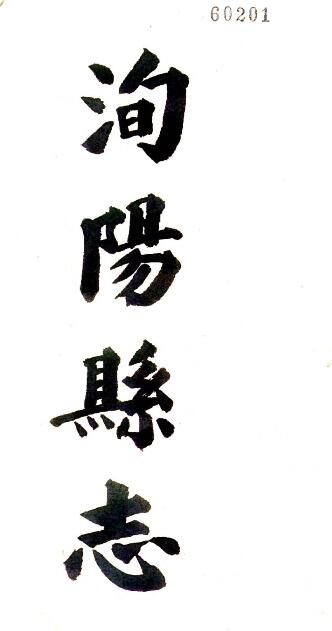 60201
洵陽縣志